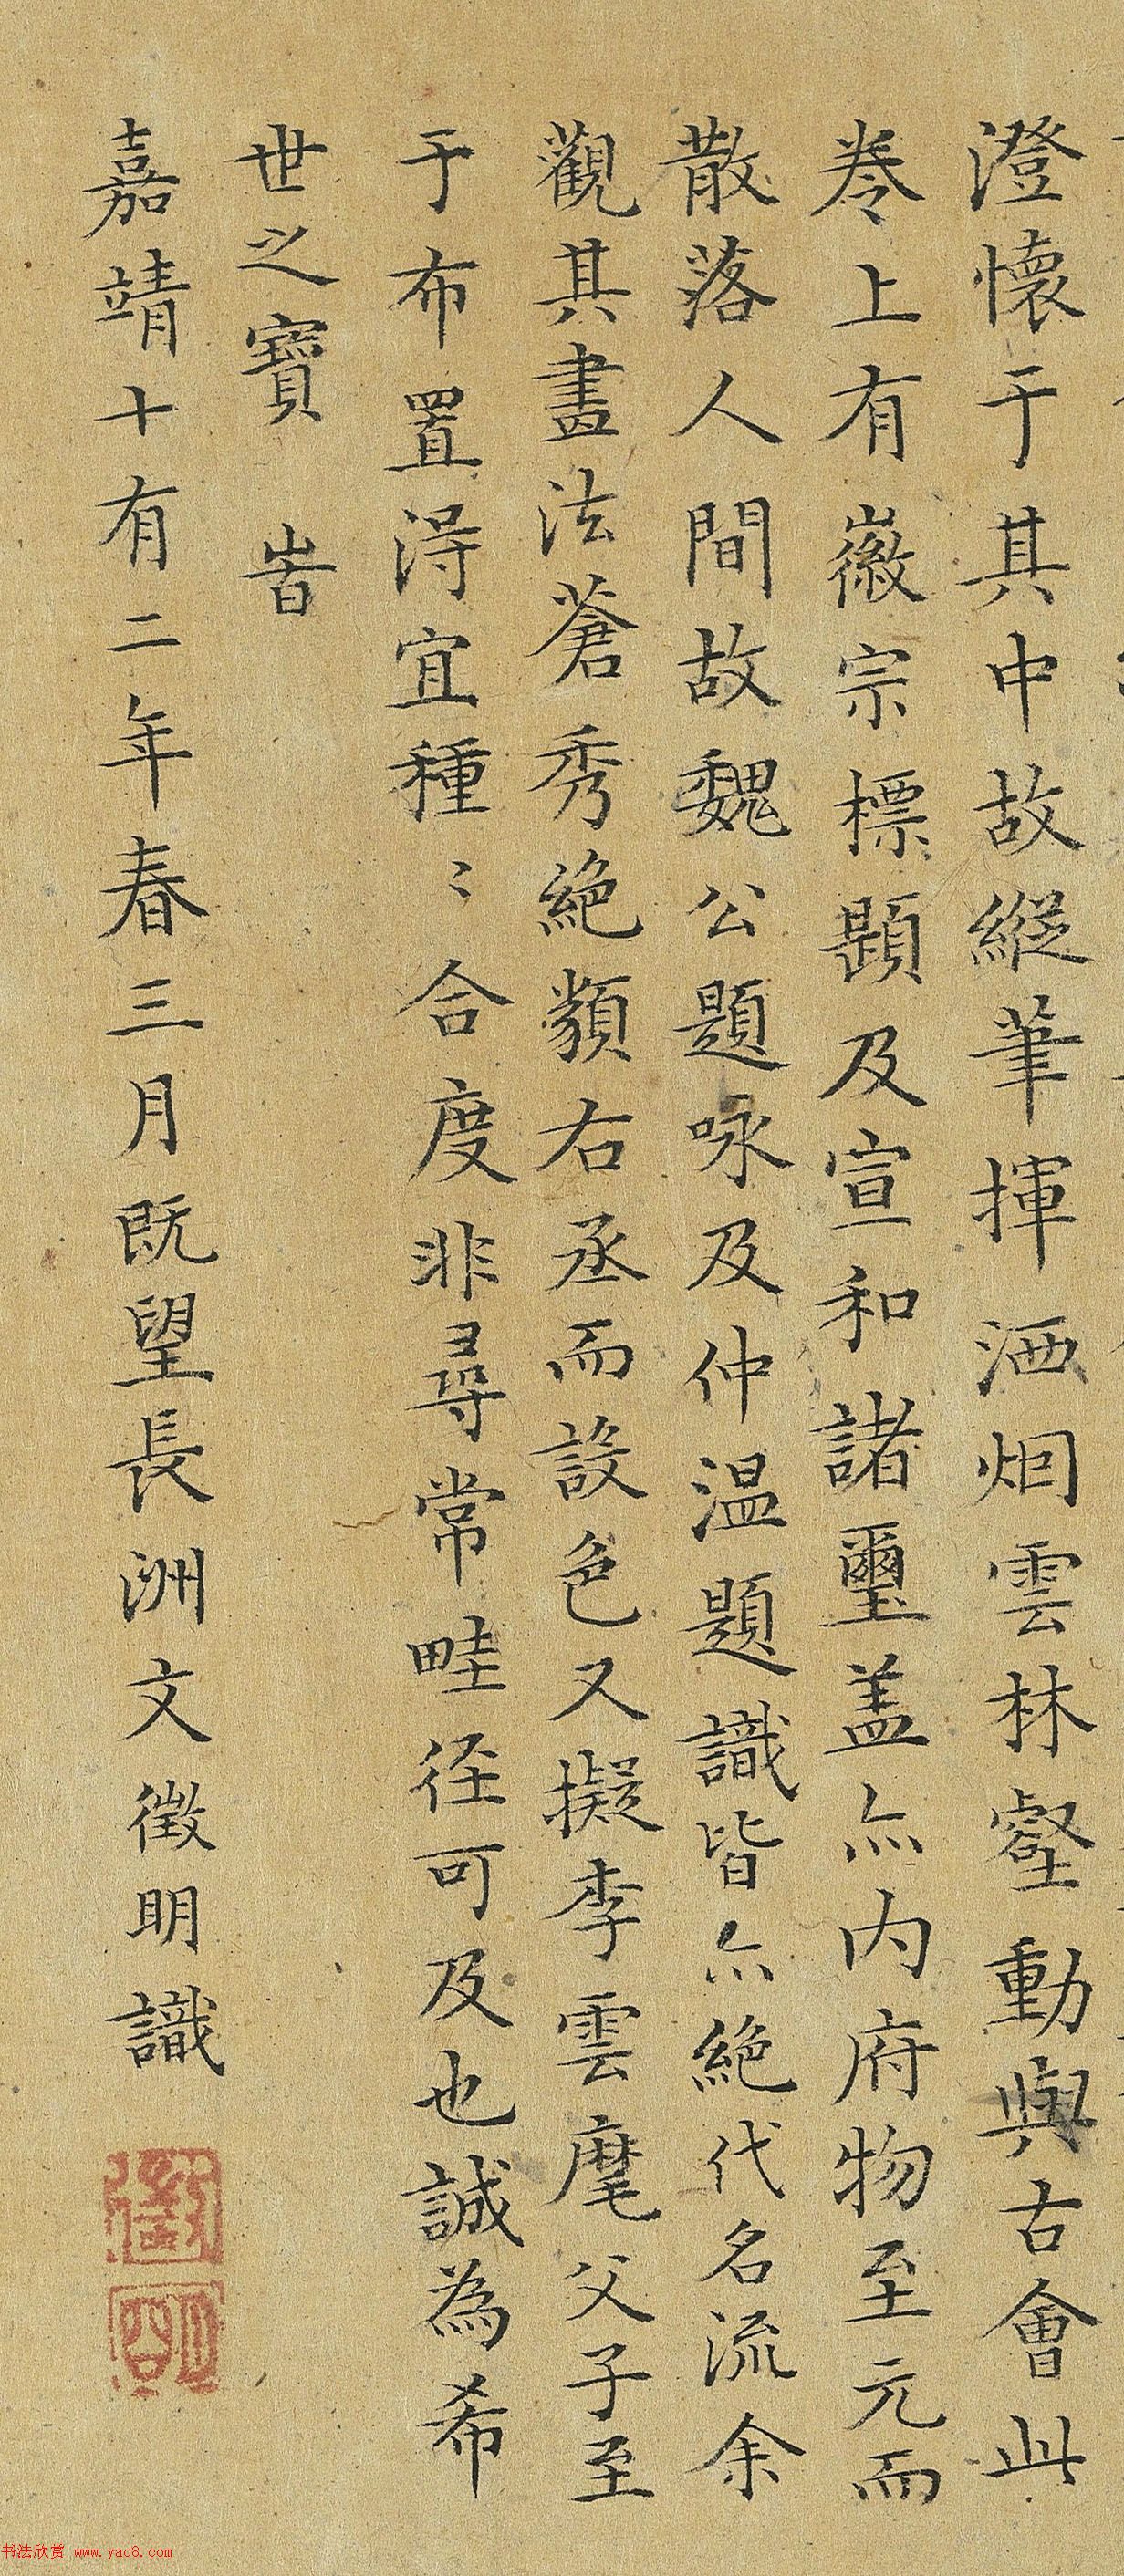 澄懷于其中故縱筆揮洒烟雲林壑動與古會此
卷上有徽宗標題及宣和諸璽盖亦内府物至元而
散落人間故魏公題咏及仲温題識皆亦絶代名流余
觀其畫法蒼秀絶類右丞而設色又擬李雲麾父子至
于布置得宜種〻合度非尋常畦径可及也誠為希
世之寶 旹
嘉靖十有二年春三月既望長洲文徵明識
徵明
书法欣赏 www.yac8.com